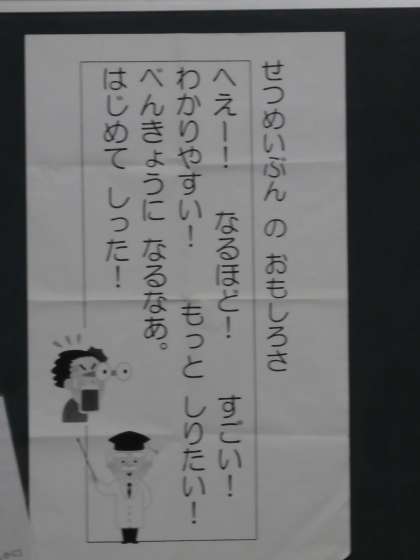 せつめいぶん の おもしろさ
へえー！ なるほど！ すごい！
わかりやすい！ もっと しりたい！
べんきょうに なるなあ。
はじめて しった！